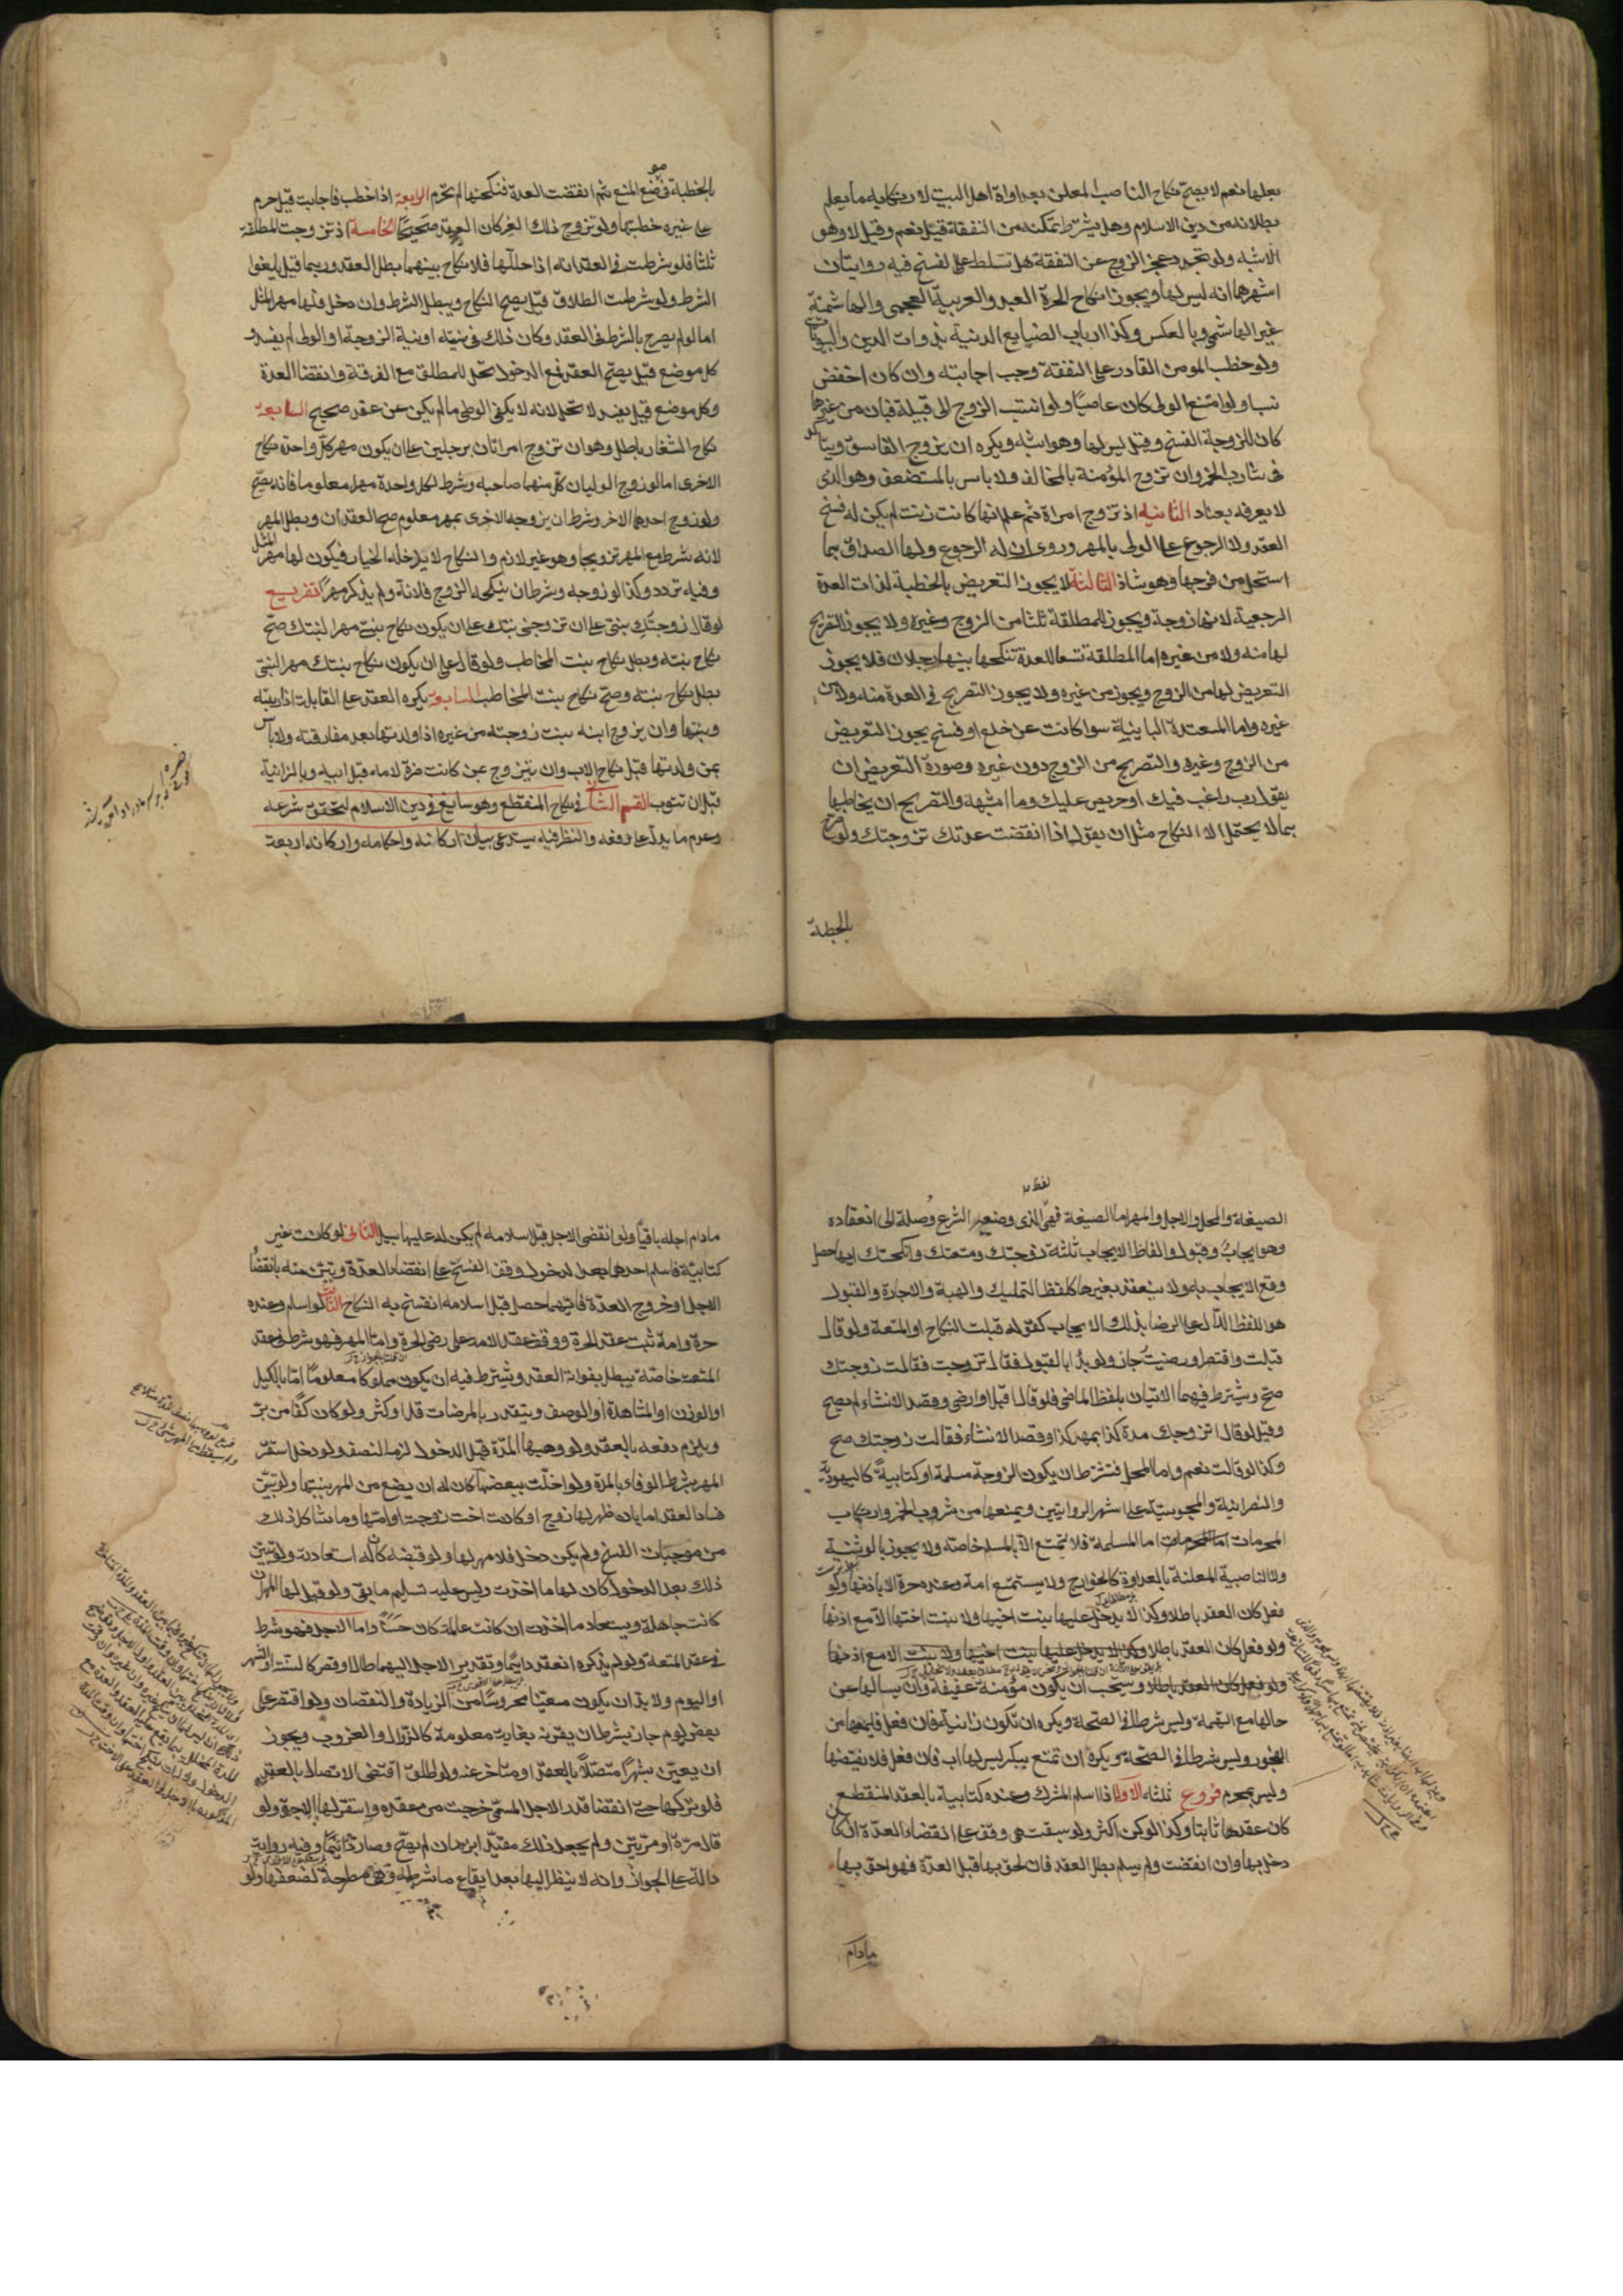 بعلها نعم لا يصح نكاح الناصب المعلن بعداوة اهل البيت لارتكابه ما يعلم
بطلانه من دين الاسلام وهل يشترط تمكنه من النفقة قيل نعم وقيل لا وهو
الاشبه ولو تجدد عجز الزوج عن النفقة هل تسلط على الفسخ فيه روايتان
اشهرهما انه ليس لها ويجوز انكاح الحرة العبد والعربية العجمي والهاشمية
غير الهاشمي وبالعكس وكذا ارباب الصنايع الدنية بذوات الدين والبيوتات
ولو خطب المومن القادر على النفقة وجب اجابته وان كان اخفض
نسبا ولو امتنع الولى كان عاصيًا ولو انتسب الزوج الى قبيلة فبان من غيرها
كان للزوجة الفسخ وقيل ليس لها وهو اشبه ويكره ان يزوج الفاسق ويتاكد
فى شارب الخمر وان تزوج المؤمنة بالمخالف ولا باس بالمستضعف وهو الذى
لا يعرف بعناد الثانيه اذ تزوج امراة ثم علم انها كانت زنت لم يكن له فسخ
العقد ولا الرجوع على الولى بالمهر وروى ان له الرجوع ولها الصداق بما
استحل من فرجها وهو شاذ الثالثة لا يجوز التعريض بالخطبة لذات العدة
الرجعية لانها زوجة ويجوز للمطلقة ثلثا من الزوج وغيره ولا يجوز التصريح
لها منه ولا من غيره اما المطلقة تسعا للعدة تنكحها بينها رجلان فلا يجوز
التعريض لها من الزوج ويجوز من غيره ولا يجوز التصريح فى العدة منه ولا من
غيره واما المعتدة الباينة سوا كانت عن خلع او فسخ يجوز التعريض
من الزوج وغيره والتصريح من الزوج دون غيره وصورة التعريض ان
يقول رب راغب فيك او حريص عليك وما اشبهه والتصريح ان يخاطبها
بما لا يحتمل الا النكاح مثل ان يقول اذا انقضت عدتك تزوجتك ولو صرح
بالخطبة
بالخطبة فى موضع المنع ثم انقضت العدة فنكحها لم تحرم الرابعة اذا خطب فاجابت قيل حرم
على غيره خطبتها ولو تزوج ذلك الغير كان العقد صحيحًا الخامسة اذ تزوجت المطلقة
ثلثا فلو شرطت فى العقد انه اذا حللها فلا نكاح بينهما بطل العقد وربما قيل يلغوا
الشرط ولو شرطت الطلاق قيل يصح النكاح ويبطل الشرط وان دخل فلها مهر المثل
اما لو لم يصرح بالشرط فى العقد وكان ذلك فى نيته او نية الزوجة او الولى لم يفسد و
كل موضع قيل يصح العقد فمع الدخول تحل للمطلق مع الفرقة وانقضا العدة
وكل موضع قيل يفسد لا تحل لانه لا يكفى الوطى ما لم يكن عن عقد صحيح السابعة
نكاح الشغار باطل وهو ان تزوج امراتان برجلين على ان يكون مهر كل واحدة نكاح
الاخرى اما لو زوج الوليان كل منهما صاحبه وشرط لكل واحدة مهرا معلوما فانه يصح
ولو زوج احدهما الاخر وشرط ان يزوجه الاخرى بمهر معلوم صح العقدان وبطل المهر
لانه شرط مع المهر تزويجا وهو غير لازم والنكاح لا يدخله الخيار فيكون لها مهر المثل
وفيه تردد وكذا لو زوجه وشرط ان ينكحه الزوج فلانة ولم يذكر مهرًا تفريع
لو قال زوجتك بنتى على ان تزوجنى بنتك على ان يكون نكاح بنتى مهرا لبنتك صح
نكاح بنته وبطل نكاح بنت المخاطب ولو قال على ان يكون نكاح بنتك مهرا لبنتى
بطل نكاح بنته وصح نكاح بنت المخاطب السابعة يكره العقد على القابلة اذا ربته
وبنتها وان يزوج ابنه ببنت زوجته من غيره اذا ولدتها بعد مفارقته ولا باس
بمن ولدتها قبل نكاح الاب وان يتزوج بمن كانت ضرة لامه قبل ابيه وبالزانية
قبل ان تتوب القسم الثانى فى نكاح المنقطع وهو سايغ فى دين الاسلام لتحقق شرعه
وعدم ما يدل على رفعه والنظر فيه يستدعى بيان اركانه واحكامه واركانه اربعة
الصيغة والمحل والاجل والمهر اما الصيغة فهى لفظ الذى وضعه الشرع وصلة الى انعقاده
وهو ايجاب وقبول والفاظ الايجاب ثلثة زوجتك ومتعتك وانكحتك ايها حصل
وقع الايجاب به ولا ينعقد بغيرها كلفظ التمليك والهبة والاجارة والقبول
هو اللفظ الدال على الرضا بذلك الايجاب كقوله قبلت النكاح او المتعة ولو قال
قبلت واقتصر او رضيت جاز ولو بدا بالقبول فقال تزوجت فقالت زوجتك
صح ويشترط فيهما الاتيان بلفظ الماضى فلو قال اقبل او ارضى وقصد الانشاء لم يصح
وقيل لو قال اتزوجك مدة كذا بمهر كذا وقصد الانشاء فقالت زوجتك صح
وكذا لو قالت نعم واما المحل فيشترط ان يكون الزوجة مسلمة او كتابية كاليهودية
والنصرانية والمجوسية على اشهر الروايتين ويمنعها من شرب الخمر وارتكاب
المحرمات اما المسلمة فلا تتمتع الا بالمسلم خاصة ولا يجوز بالوثنية
ولا الناصبية المعلنة بالعداوة كالخوارج ولا يستمتع امة وعنده حرة الا باذنها ولو
فعل كان العقد باطلا وكذا لا يدخل عليها بنت اخيها ولا بنت اختها الا مع اذنها
ولو فعل كان العقد باطلا وكذا لا يدخل عليها بنت اخيها ولا بنت الا مع اذنها
ولو فعل كان العقد باطلا ويستحب ان يكون مؤمنة عفيفة وان يسالها عن
حالها مع التهمة وليس شرطا فى الصحة ويكره ان تكون زانية فان فعل فليمنعها من
الفجور وليس شرطا فى الصحة ويكره ان تمتع ببكر ليس لها اب فان فعل فلا يفتضها
وليس بمحرم فروع ثلثه الاول اذا اسلم المشرك وعنده كتابية بالعقد المنقطع
كان عقدها ثابتا وكذا لو كن اكثر ولو سبقت هى وقف على انقضاء العدة ان كان
دخل بها وان انقضت ولم يسلم بطل العقد فان لحق بها قبل العدة فهو احق بها
مادام
مادام اجله باقيًا ولو انقضى الاجل قبل اسلامه لم يكن له عليها سبيل الثانى لو كانت غير
كتابية فاسلم احدهما بعد الدخول وقف الفسخ على انقضاء العدة وتبين منه بانقضاء
الاجل او خروج العدة فايهما حصل قبل اسلامه انفسخ به النكاح الثالث لو اسلم وعنده
حرة وامة ثبت عقد الحرة ووقف عقد الامة على رضى الحرة واما المهر فهو شرط فى عقد
المتعة خاصة يبطل بفواته العقد ويشترط فيه ان يكون مملوكا معلومًا اما بالكيل
او الوزن او المشاهدة او الوصف ويتقدر بالمرضات قل او كثر ولو كان كفًا من بر
ويلزم دفعه بالعقد ولو وهبها المدة قبل الدخول لزمه النصف ولو دخل استقر
المهر بشرط الوفاء بالمدة ولو اخلت ببعضها كان له ان يضع من المهر بنسبتها ولو تبين
فساد العقد اما بان ظهر لها زوج او كانت اخت زوجته او امها وما شاكل ذلك
من موجبات الفسخ ولم يكن دخل فلا مهر لها ولو قبضه كان له استعادته ولو تبين
ذلك بعد الدخول كان لها ما اخذت وليس عليه تسليم ما بقى ولو قيل لها المهر ان
كانت جاهلة ويستعاد ما اخذت ان كانت عالمة كان حسنًا واما الاجل فهو شرط
فى عقد المتعة ولو لم يذكره انعقد دايمًا وتقدير الاجل اليهما طال او قصر كالسنة والشهر
او اليوم ولا بد ان يكون معينًا محروسًا من الزيادة والنقصان ولو اقتصر على
بعض يوم جاز بشرط ان يقرنه بغاية معلومة كالزوال والغروب ويجوز
ان يعين شهرًا متصلًا بالعقد او متاخر عنه ولو اطلق اقتضى الاتصال بالعقد
فلو تركها حتى انقضا قدر الاجل المسمى خرجت من عقده واستقر لها الاجرة ولو
قال مرة او مرتين ولم يجعل ذلك مقيدا بزمان لم يصح وصار دائمًا وفيه رواية
دالة على الجواز وانه لا ينظر اليها بعد ايقاع ما شرطه وهى مطرحة لضعفها ولو